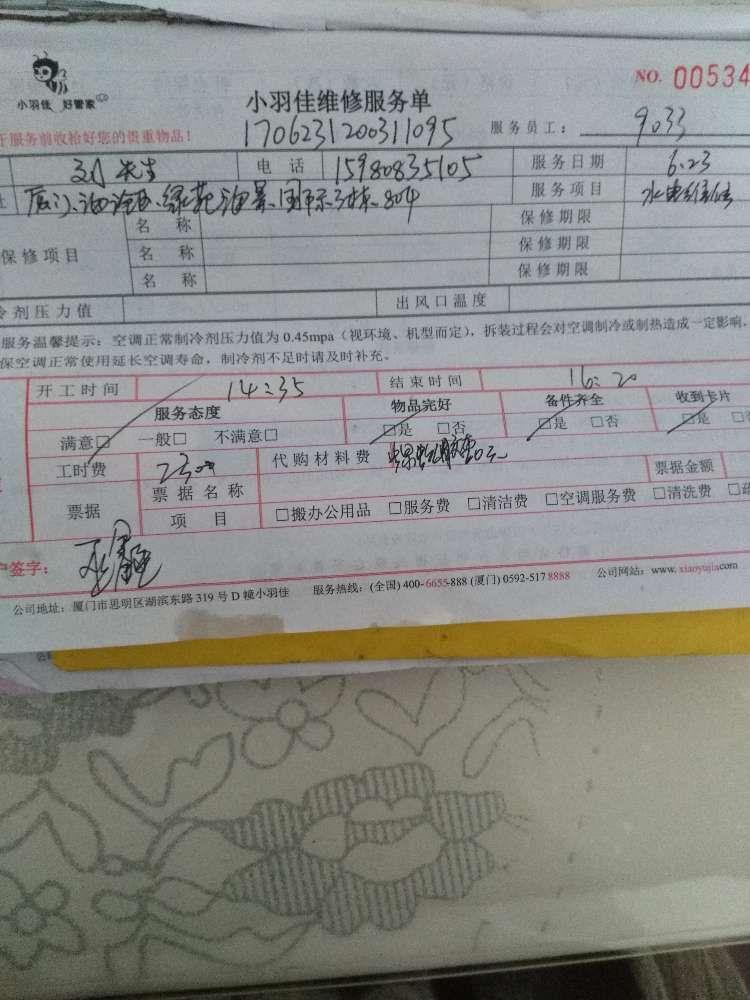 小羽佳 好管家
NO. 00534
小羽佳维修服务单
于服务前收拾好您的贵重物品！
170623120031109​5
服务员工： 9033
刘先生 电话 15980835105 服务日期 6.23
址 厦门海沧区 绿苑海景国际3栋804 服务项目 水电维修
保修项目 名称 保修期限
名称 保修期限
名称 保修期限
冷剂压力值 出风口温度
服务温馨提示：空调正常制冷剂压力值为 0.45mpa（视环境、机型而定），拆装过程会对空调制冷或制热造成一定影响。
保空调正常使用延长空调寿命，制冷剂不足时请及时补充。
开工时间 14:35 结束时间 16:20
服务态度 物品完好 备件齐全 收到卡片
满意□ 一般□ 不满意□ □是 □否 □是 □否 □是 □否
工时费 230元 代购材料费
票据 票据名称 票据金额
项目 □搬办公用品 □服务费 □清洁费 □空调服务费 □清洗费
户签字：
公司地址：厦门市思明区湖滨东路 319 号 D 幢小羽佳 服务热线：(全国) 400-6655-888 (厦门) 0592-517 8888 公司网站：www.xiaoyujia.com